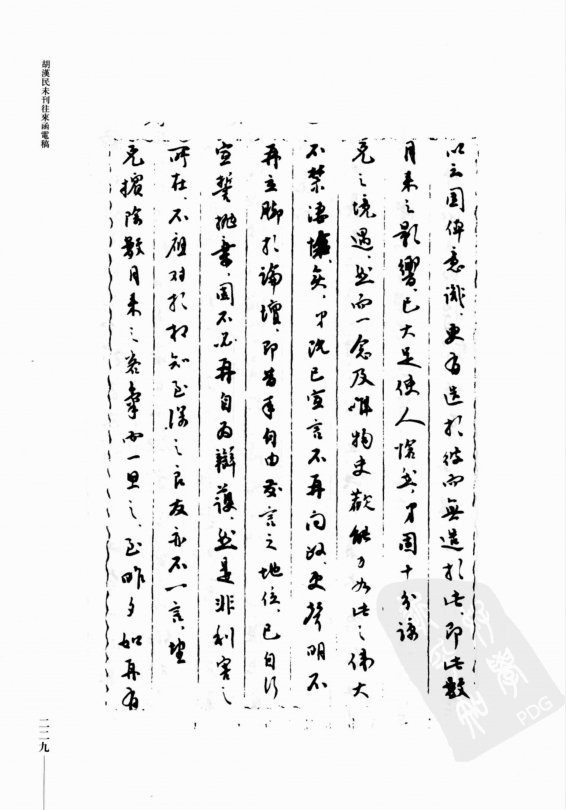 以立國偉意識、更有迭於彼而無造於此、即此數
月來之影響、已大足使人悚然、弟固十分諒
兄之境遇、然而一念及唯物史觀能力如此之偉大
不禁悽然矣、弟既已宣言不再向政、更聲明不
再立腳於論壇、即昔年自由發言之地位、已自行
宣誓拋棄、固不必再自為辯護、然是非利害之
所在、不應對於相知至深之良友亦不一言、望
兄擯除數月來之客氣而一思之、至昨夕如再有
胡漢民未刊往來函電稿
二二九
PDG